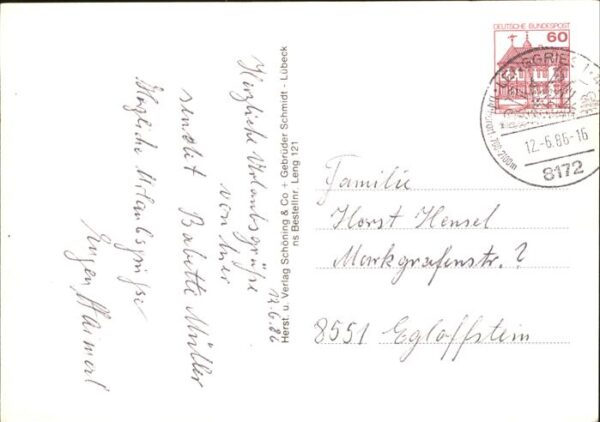 Herzliche Urlaubsgrüße
von hier
sendet Babette Müller
Herzliche Urlaubsgrüße
Eugen Haimerl
12.6.86
Herst. u. Verlag Schöning & Co + Gebrüder Schmidt - Lübeck
ns Bestellnr. Leng 121
DEUTSCHE BUNDESPOST
60
LENGGRIES 1
700-2100m
12.-6.86-16
8172
Familie
Horst Hensel
Markgrafenstr. 2
8551 Egloffstein